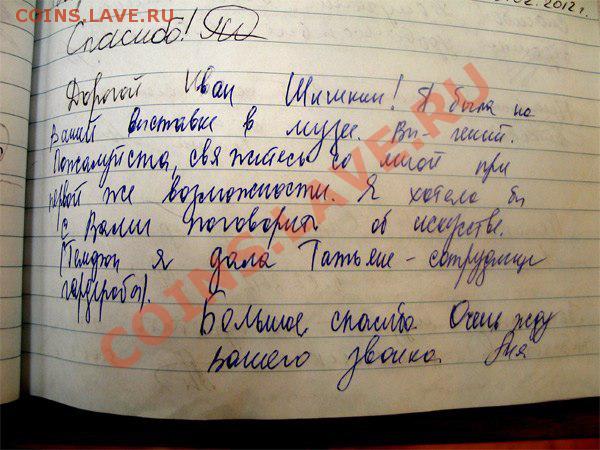 COINS.LAVE.RU
.02.2012 г.
Спасибо!
Дорогой Иван Шишкин! Я была на
Вашей выставке в музее. Вы - гений.
Пожалуйста, свяжитесь со мной при
первой же возможности. Я хотела бы
с Вами поговорить об искусстве.
(Телефон я дала Татьяне - сотруднице
гардероба).
Большое спасибо. Очень жду
вашего звонка.
COINS.LAVE.RU